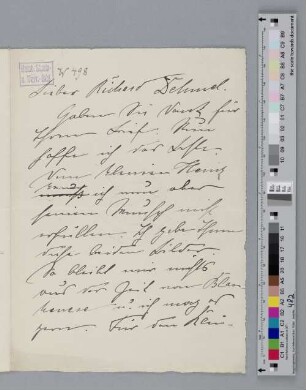 W 498
Lieber Richard Dehmel.
Haben Sie Dank für
Ihren Brief. Nun
hoffe ich das Beste.
Dem kleinen Heinz
ich nun aber
seinen Wunsch nicht
erfüllen. Ich gebe Ihnen
diese beiden Bilder
so bleibt mir nichts
aus der Zeit von Blan-
kenese u. ich mag es
gern. Für den Klei-